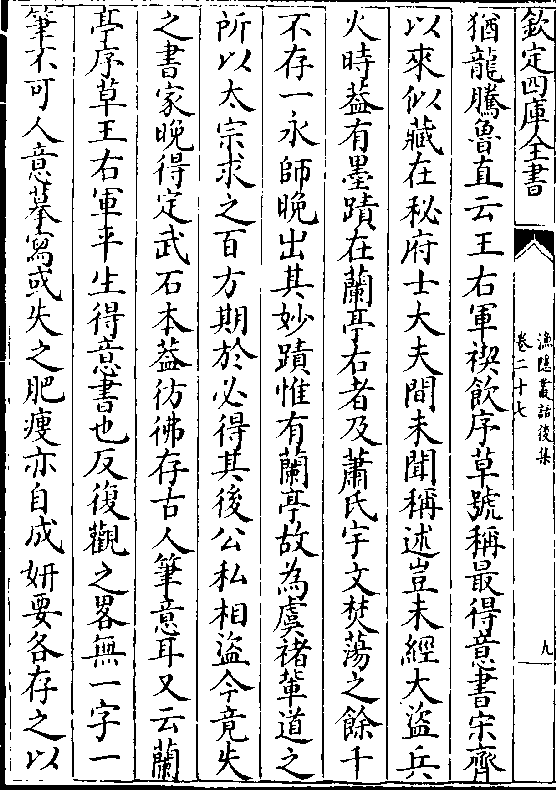 欽定四庫全書
漁隱叢話後集
卷二十七
九
猶龍騰魯直云王右軍禊飲序草號稱最得意書宋齊
以來似藏在秘府士大夫間未聞稱述豈未經大盜兵
火時葢有墨蹟在蘭亭右者及蕭氏宇文焚蕩之餘千
不存一永師晚出其妙蹟惟有蘭亭故為虞褚輩道之
所以太宗求之百方期於必得其後公私相盜今竟失
之書家晚得定武石本葢彷彿存古人筆意耳又云蘭
亭序草王右軍平生得意書也反復觀之畧無一字一
筆不可人意摹寫或失之肥瘦亦自成妍要各存之以